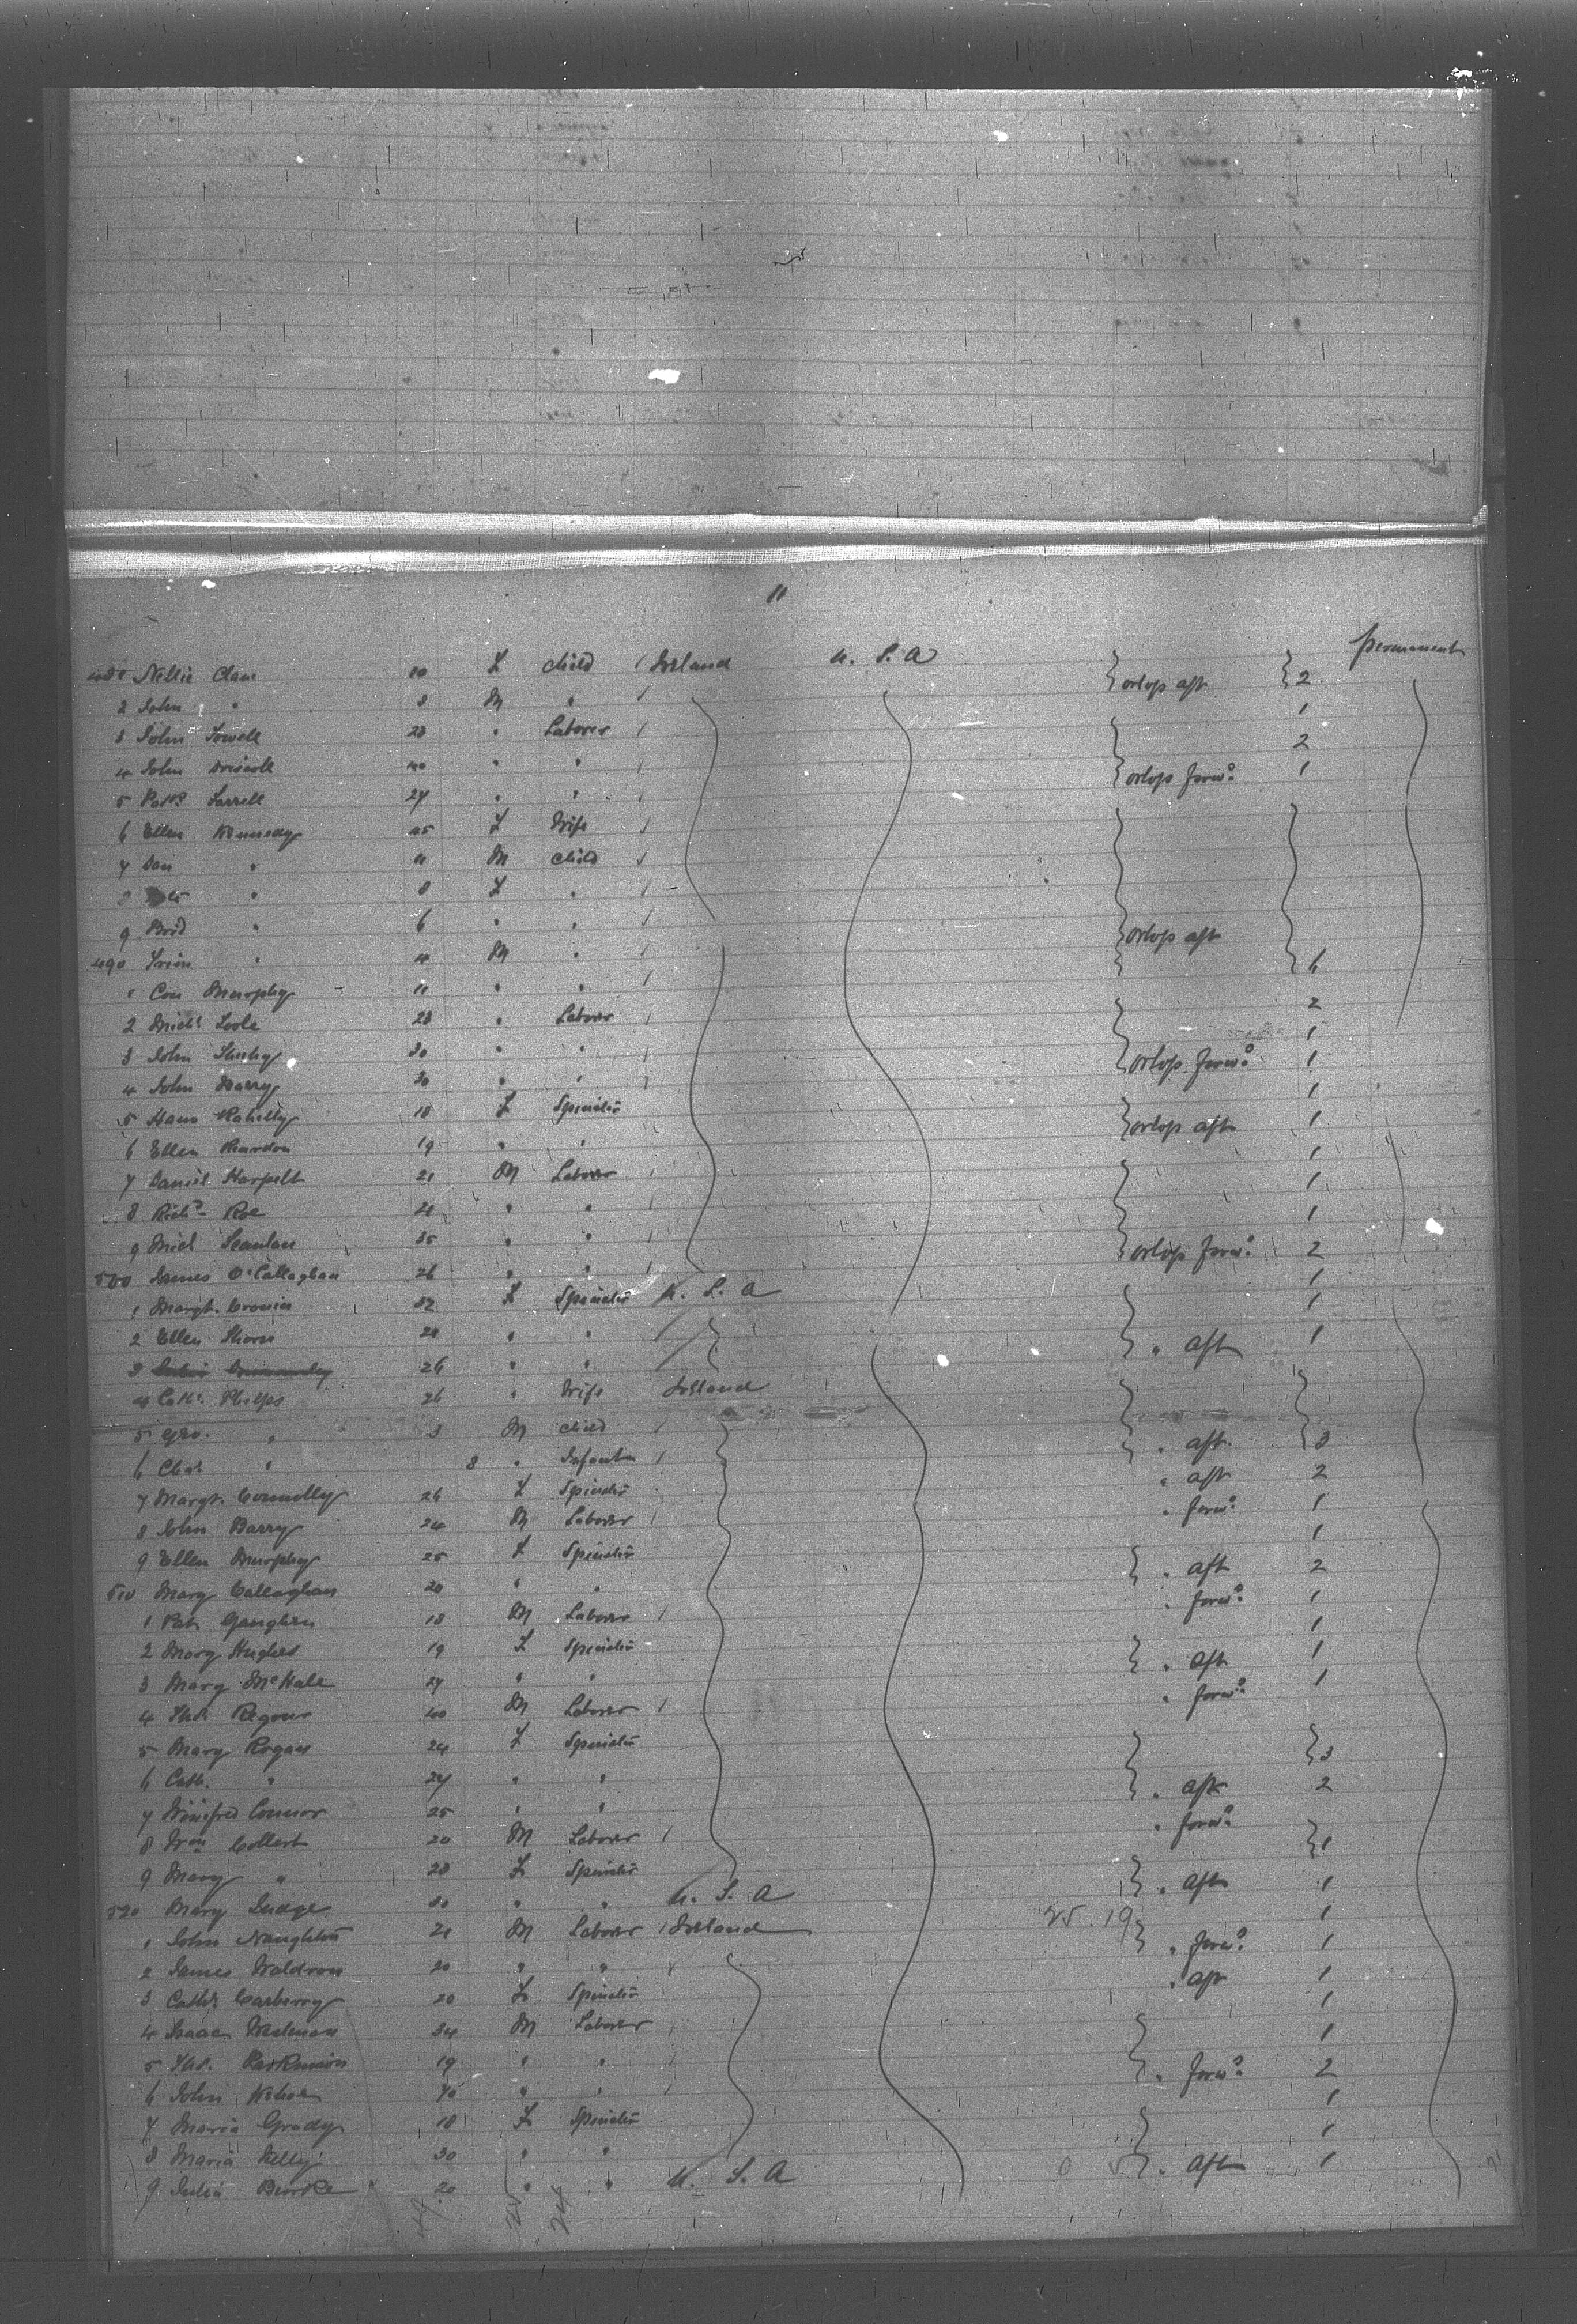 11
permanent
Nellie Clane 10 F child / Ireland U. S. A orlop aft 2
2 John " 8 M " / 1
3 John 23 " Laborer / 2
4 John Driscoll 40 " " / orlop forwd. 1
5 Patk Farrell 27 " " /
6 Ellen Kennedy 45 F Wife /
7 Dan " 11 M child /
8 " 8 F " /
9 Brid " 6 " " / orlop aft
490 " 4 M " / 6
1 Con Murphy 11 " " / 2
2 Michl 23 " Laborer / 1
3 John Sheehy 30 " " / orlop forwd. 1
4 John Barry 20 " " / 1
5 Hana Rahilly 18 F Spinstr orlop aft 1
6 Ellen Reardon 19 " " 1
7 Daniel 21 M Laborer / 1
8 Richd Roe 21 " " / 1
9 Mich Scanlan 35 " " / orlop forwd. 2
500 James O'Callaghan 26 " " / 1
1 Margt. Cronin 32 F Spinstr U. S. A 1
2 Ellen 20 " " " aft 1
3 26 " "
4 Cath. Phelps 26 " Wife Ireland
5 Geo. " 3 M child / " aft 3
6 Chas " 8 " Infant / " aft 2
7 Margt. Connolly 26 F Spinstr " forwd. 1
8 John Barry 24 M Laborer / 1
9 Ellen Murphy 25 F Spinstr " aft 2
510 Mary Callaghan 20 " " " forwd. 1
1 Pat Gaughan 18 M Laborer / 1
2 Mary Hughes 19 F Spinstr " aft 1
3 Mary McHale 27 " " " forwd. 1
4 Thos. 40 M Laborer /
5 Mary Rogan 24 F Spinstr 3
6 Cath. " 27 " " " aft 2
7 Winifred Connor 25 " " " forwd.
8 Wm Collert 20 M Laborer / 1
9 Mary " 23 F Spinstr " aft 1
520 Mary Judge 30 " " U. S. A 25.19 1
1 John Naughton 21 M Laborer / Ireland " forwd. 1
2 James Waldron 20 " " / " aft 1
3 Cathr Carberry 20 F Spinstr 1
4 Isaac 34 M Laborer / 1
5 Thos. 19 " " / " forwd. 2
6 John " " / 1
7 Maria Grady 18 F Spinstr 1
8 Maria Kelly 30 " " " aft 1
9 Julia Burke 20 " " U. S. A